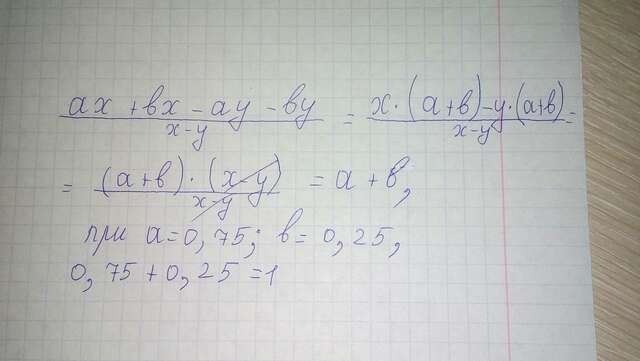 (ax + bx - ay - by)/(x-y) = (x·(a+b)-y·(a+b))/(x-y) =
= ((a+b)·(x-y))/(x-y) = a + b,
при a=0,75; b=0,25,
0,75+0,25=1